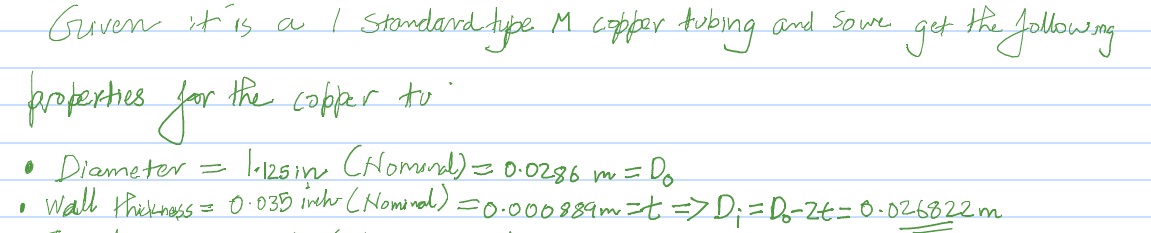 Given it is a 1 Standard type M copper tubing and so we get the following
properties for the copper tu
• Diameter = 1.125 in (Nominal) = 0.0286 m = D₀
• Wall thickness = 0.035 inch (Nominal) = 0.000889m = t => Dᵢ = D₀-2t = 0.026822 m